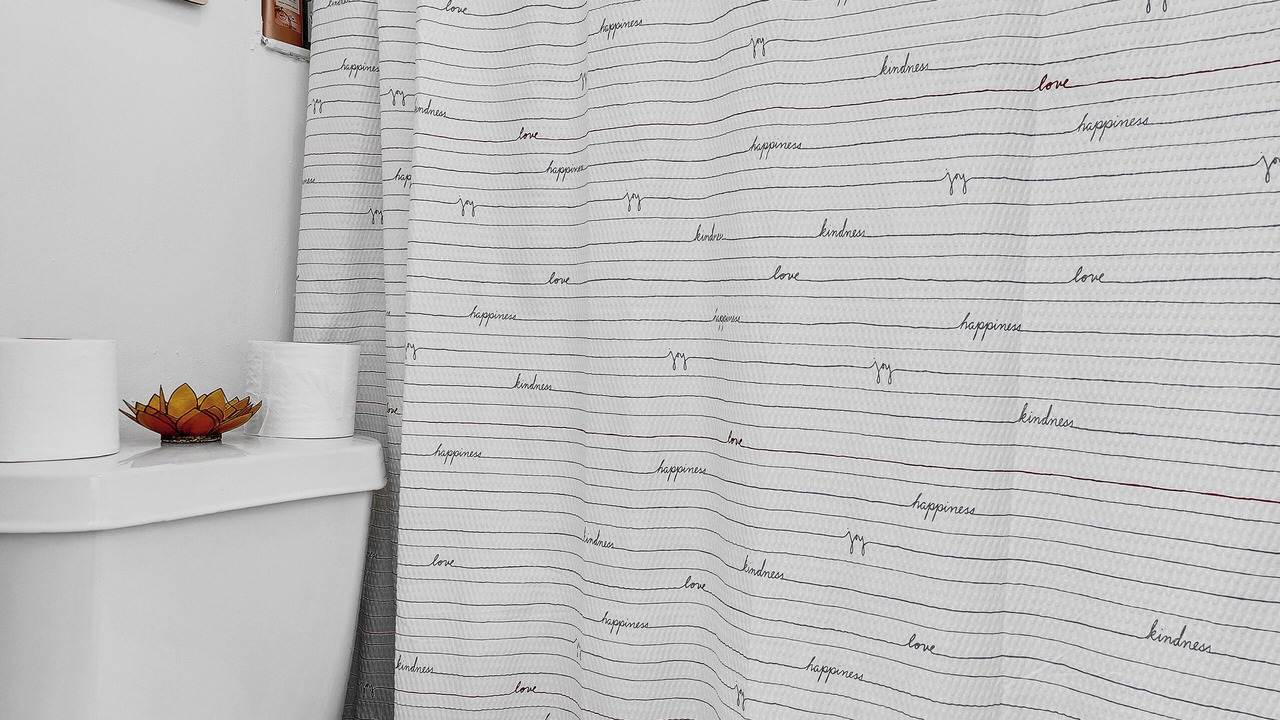 love
happiness
joy
kindness
happiness
love
joy
joy
love
happiness
happiness
joy
joy
joy
joy
kindness
love
love
love
happiness
happiness
joy
joy
kindness
kindness
love
happiness
happiness
happiness
joy
kindness
love
love
happiness
love
kindness
kindness
happiness
love
joy